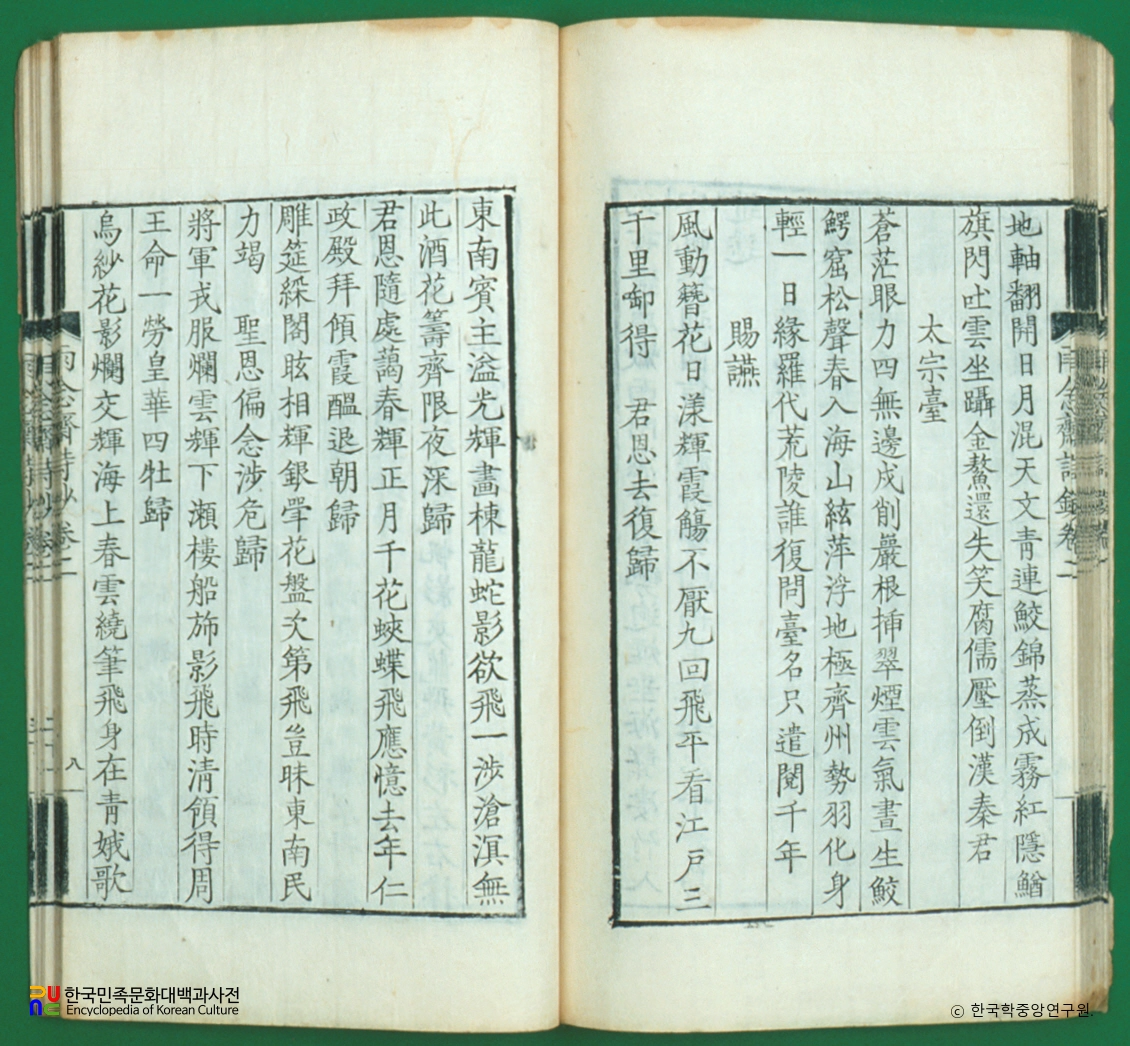 地軸翻開日月混天文青連鮫錦蒸成霧紅隱鰌
旗閃吐雲坐躡金鰲還失笑腐儒壓倒漢秦君
太宗臺
蒼茫眼力四無邊戍削巖根揷翠煙雲氣晝生鮫
鰐窟松聲春入海山絃萍浮地極齊州勢羽化身
輕一日緣羅代荒陵誰復問臺名只遣閱千年
賜讌
風動簪花日漾輝霞觴不厭九回飛平看江戶三
千里啣得 君恩去復歸
東南賓主溢光輝畫棟龍蛇影欲飛一涉滄溟無
此酒花籌齊限夜深歸
君恩隨處藹春輝正月千花蛺蝶飛應憶去年仁
政殿拜傾霞醞退朝歸
雕筵綵閣眩相輝銀斝花盤次第飛豈昧東南民
力竭 聖恩偏念涉危歸
將軍戎服爛雲輝下瀨樓船斾影飛時淸領得周
王命一勞皇華四牡歸
烏紗花影爛交輝海上春雲繞筆飛身在青娥歌
雨念齋詩鈔卷二
八
한국민족문화대백과사전
Encyclopedia of Korean Culture
ⓒ 한국학중앙연구원.